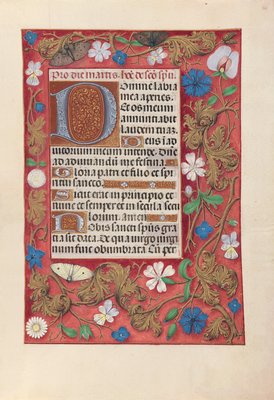 Pro die martis. hoē de scō spū.
Domine labia
mea aperies.
Et os meum
annuntiabit
laudem tuaz.
Deus in ad
iutorium meum intende. Dne
ad adiuuandū me festina
Gloria patri et filio et spi
ritui sancto.
Sicut erat in principio et
nunc et semper et in secula secu
lorum. amen
Nobis sancti spūs gra
tia sit data. De qua uirgo uirgi
num fuit obumbrata Cū per